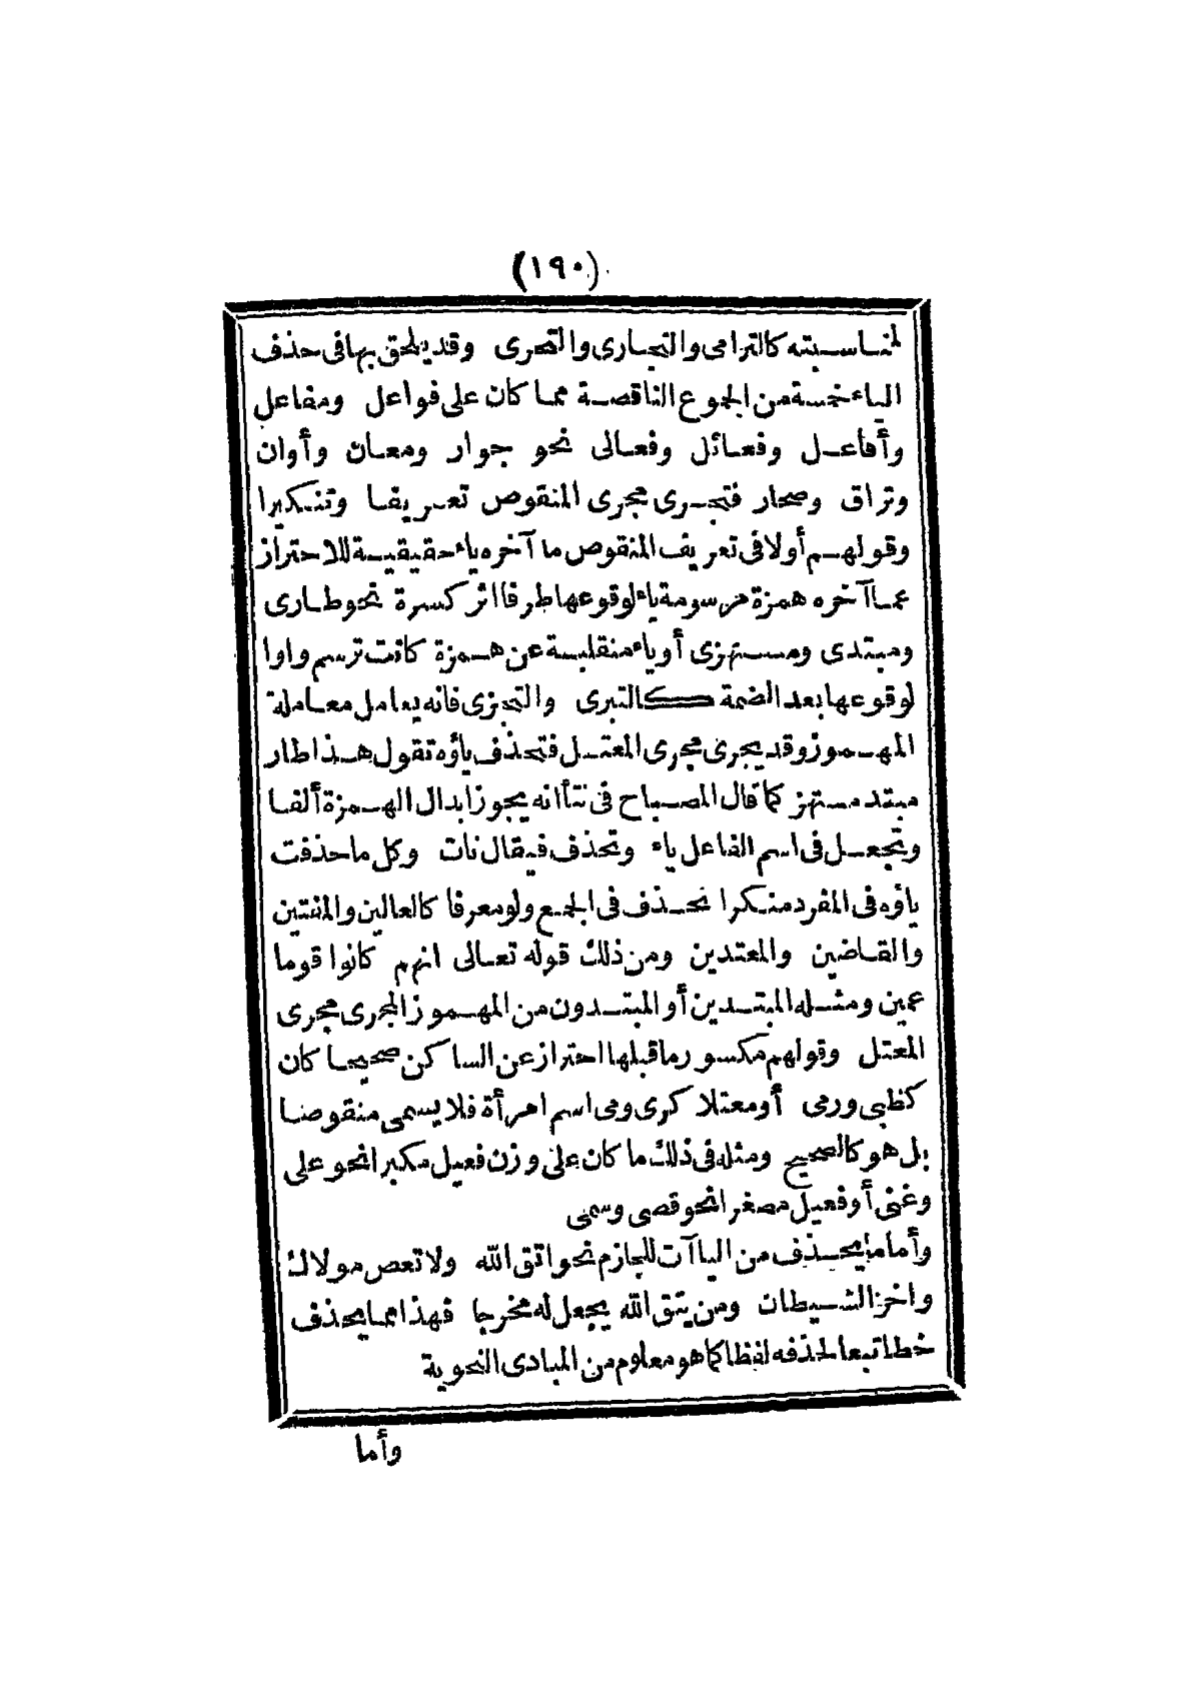 (١٩٠)
لمناسبته كالترامى والتجارى والتحرى وقد يلحق بها فى حذف
الياء خمسة من الجموع الناقصة مما كان على فواعل ومفاعل
وأفاعل وفعائل وفعالى نحو جوار ومعان وأوان
وتراق وصحار فتجرى مجرى المنقوص تعريفا وتنكيرا
وقولهم أولا فى تعريف المنقوص ما آخره ياء حقيقية للاحتراز
عما آخره همزة مرسومة ياء لوقوعها طرفا اثر كسرة نحو طارى
ومبتدى ومستهزى أو ياء منقلبة عن همزة كانت ترسم واوا
لوقوعها بعد الضمة كالتبرى والتجزى فانه يعامل معاملة
المهموز وقد يجرى مجرى المعتل فتحذف ياؤه تقول هذا طار
مبتد مستهز كما قال المصباح فى نتأ انه يجوز ابدال الهمزة ألفا
وتجعل فى اسم الفاعل ياء وتحذف فيقال نات وكل ما حذفت
ياؤه فى المفرد منكرا تحذف فى الجمع ولو معرفا كالعالين والمنتين
والقاضين والمعتدين ومن ذلك قوله تعالى انهم كانوا قوما
عمين ومثله المبتدين أو المبتدون من المهموز المجرى مجرى
المعتل وقولهم مكسور ما قبلها احتراز عن الساكن صحيحا كان
كظبى ورمى أو معتلا كرى ومى اسم امرأة فلا يسمى منقوصا
بل هو كالصحيح ومثله فى ذلك ما كان على وزن فعيل مكبرا نحو على
وغنى أو فعيل مصغرا نحو قصى وسمى
وأما ما يحذف من الياآت للجازم نحو اتق الله ولا تعص مولاك
واخز الشيطان ومن يتق الله يجعل له مخرجا فهذا مما يحذف
خطا تبعا لحذفه لفظا كما هو معلوم من المبادى النحوية
وأما